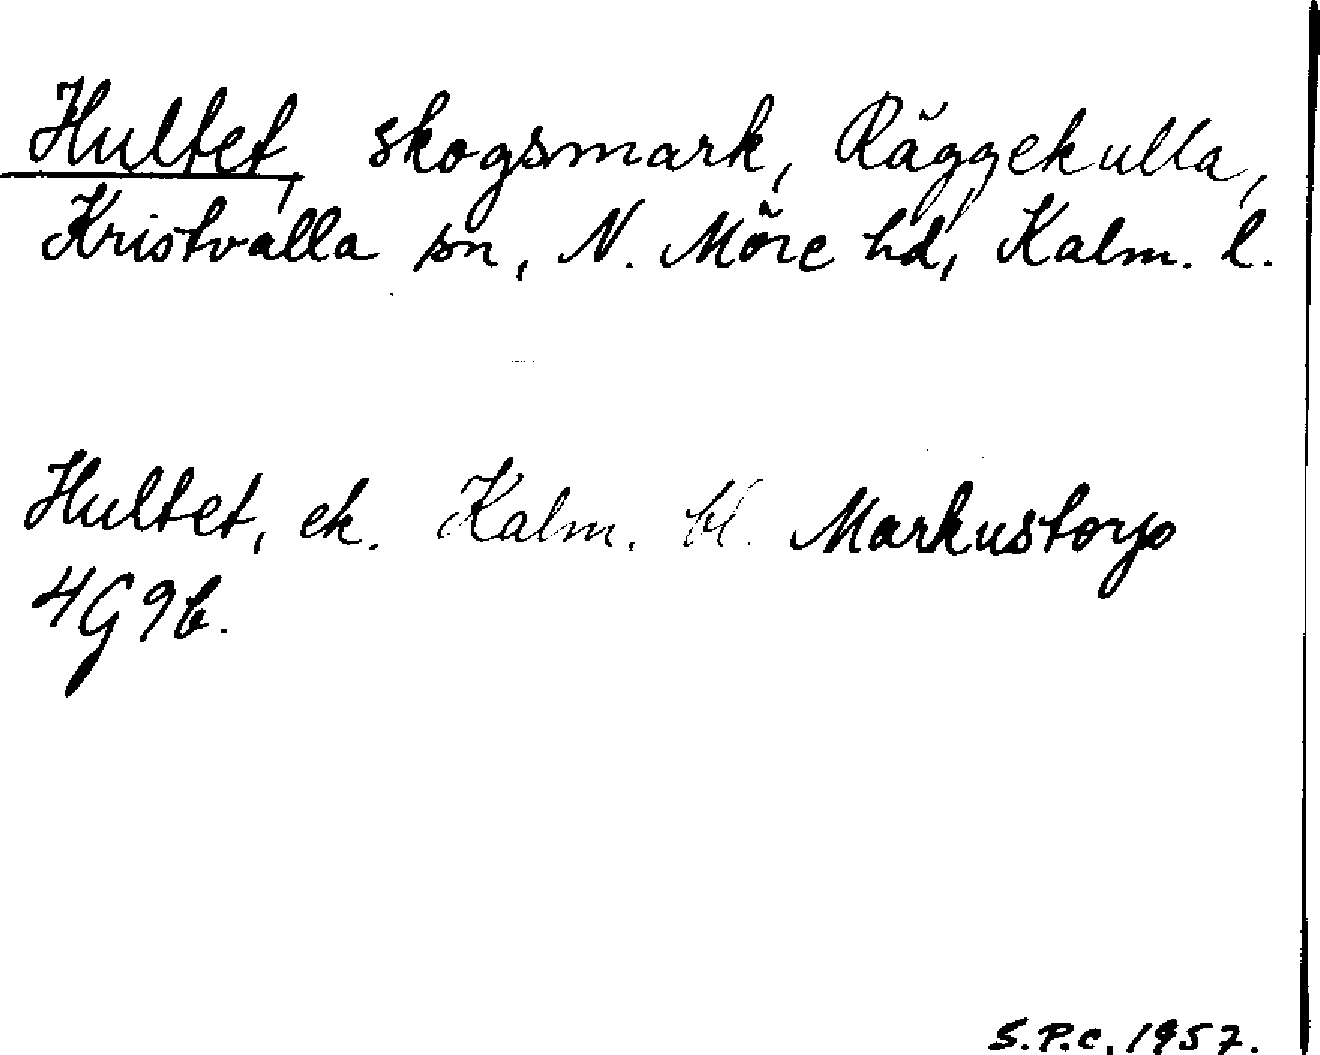 Hultet, skogsmark, Räggekulla,
Kristvalla sn, N. Möre hd, Kalm. l.
Hultet, ek. Kalm. bl. Markustorp
4G9b.
S.P.C. 1957.